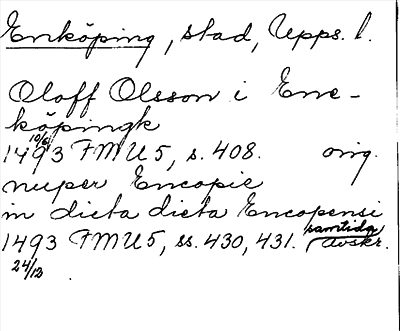 Enköping, stad, Upps. l.
Oloff Olsson i Ene-
köpingk
10/6
1493 FMU 5, s. 408. orig.
nuper Encopie
in dicta dicta Encopensi
samtida
1493 FMU 5, ss. 430, 431. avskr.
24/12